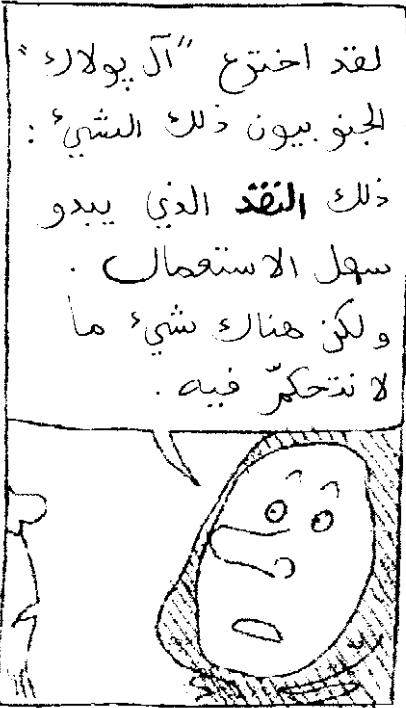 لقد اخترع "آل پولاك"
الجنوبيون ذلك الشيئ :
ذلك النقد الذي يبدو
سهل الاستعمال .
ولكن هناك شيئ ما
لا نتحكّم فيه .